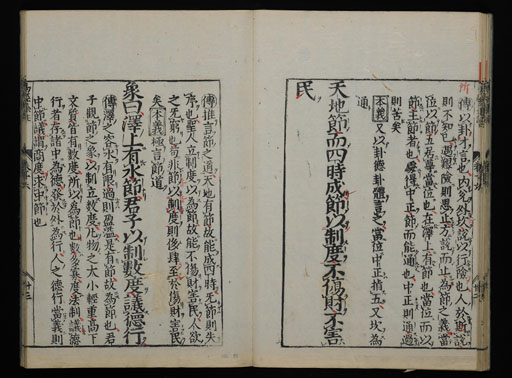 傳以卦才言也內兌外坎說以行險也人於所說
則不知已遇艱險則思止方說而止為節之義當
位以節五居尊當位也在澤上有節也當位而以
節主節者也處得中正節而能通也中正則通過
則苦矣
本義又以卦德卦體言之當位中正指五又坎為
通
天地節而四時成節以制度不傷財不害
民
傳推言節之道天地有節故能成四時无節則失
序也聖人立制度以為節故能不傷財害民人欲
之无窮也苟非節以制度則侈肆至於傷財害民
矣本義極言節道
象曰澤上有水節君子以制數度議德行
傳澤之容水有限過則盈溢是有節故為節也君
子觀節之象以制立數度凡物之大小輕重高下
文質皆有數度所以為節也數多寡度法制議德
行者存諸中為德發於外為行人之德行當義則
中節議謂商度求中節也